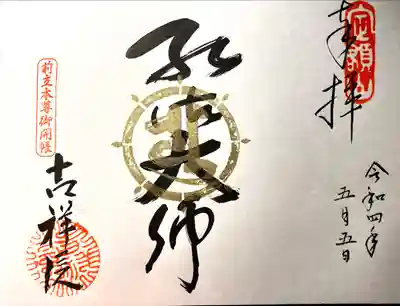 定額山
奉拝
令和四年
五月五日
弘法大師
前立本尊御開帳
吉祥院